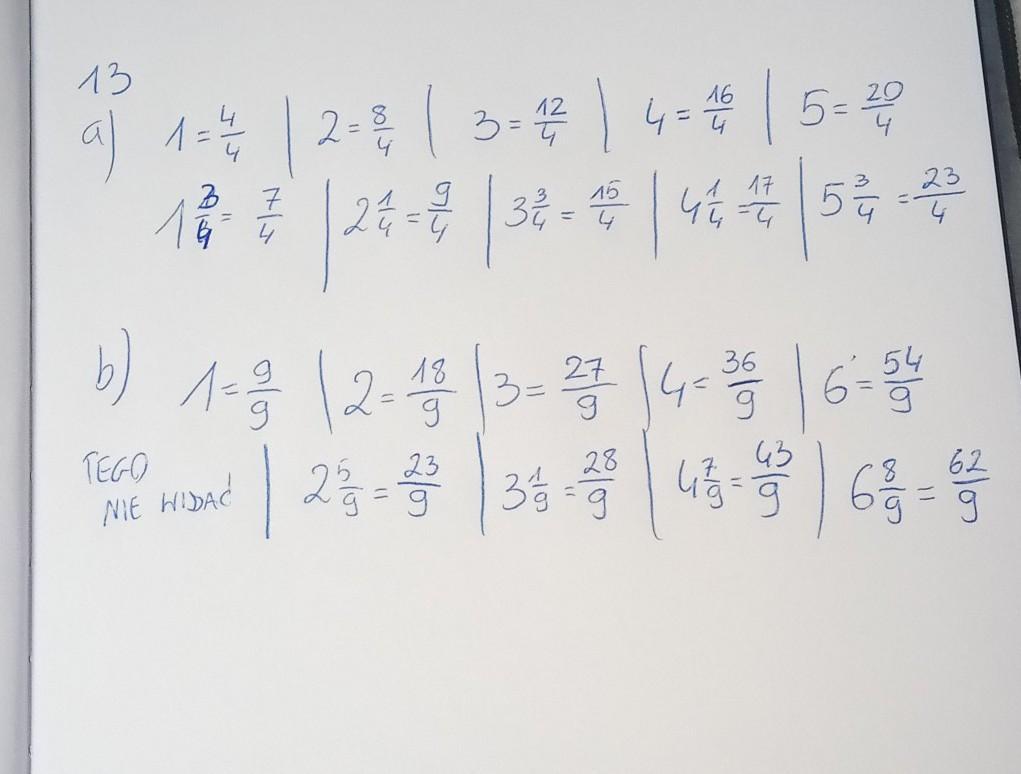 13
a) 1 = 4/4 | 2 = 8/4 | 3 = 12/4 | 4 = 16/4 | 5 = 20/4
1 3/4 = 7/4 | 2 1/4 = 9/4 | 3 3/4 = 15/4 | 4 1/4 = 17/4 | 5 3/4 = 23/4
b) 1 = 9/9 | 2 = 18/9 | 3 = 27/9 | 4 = 36/9 | 6 = 54/9
TEGO NIE WIDAĆ | 2 5/9 = 23/9 | 3 1/9 = 28/9 | 4 7/9 = 43/9 | 6 8/9 = 62/9